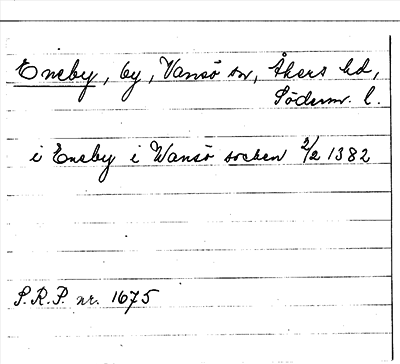 Eneby, by, Vansö sn, Åkers hd,
Söderm. l.
i Eneby i Wansö socken 2/2 1382
S.R.P. nr. 1675